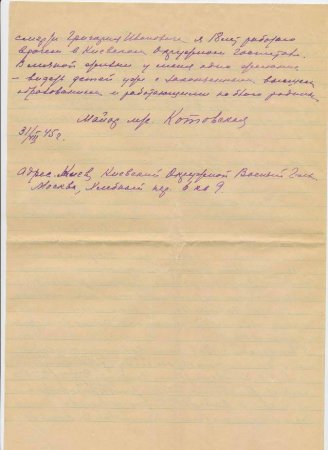 смерти Григория Ивановича я 18 лет работаю
врачем в Киевском Окружном Госпитале.
В личной жизни у меня одно желание
- видеть детей уже с законченным высшим
образованием и работающими на благо родины.
Майор м/с Котовская
31/VII 45 г.
Адрес. Киев, Киевский Окружной Военный Госп.
Москва, Хлебный пер. 6 кв 9